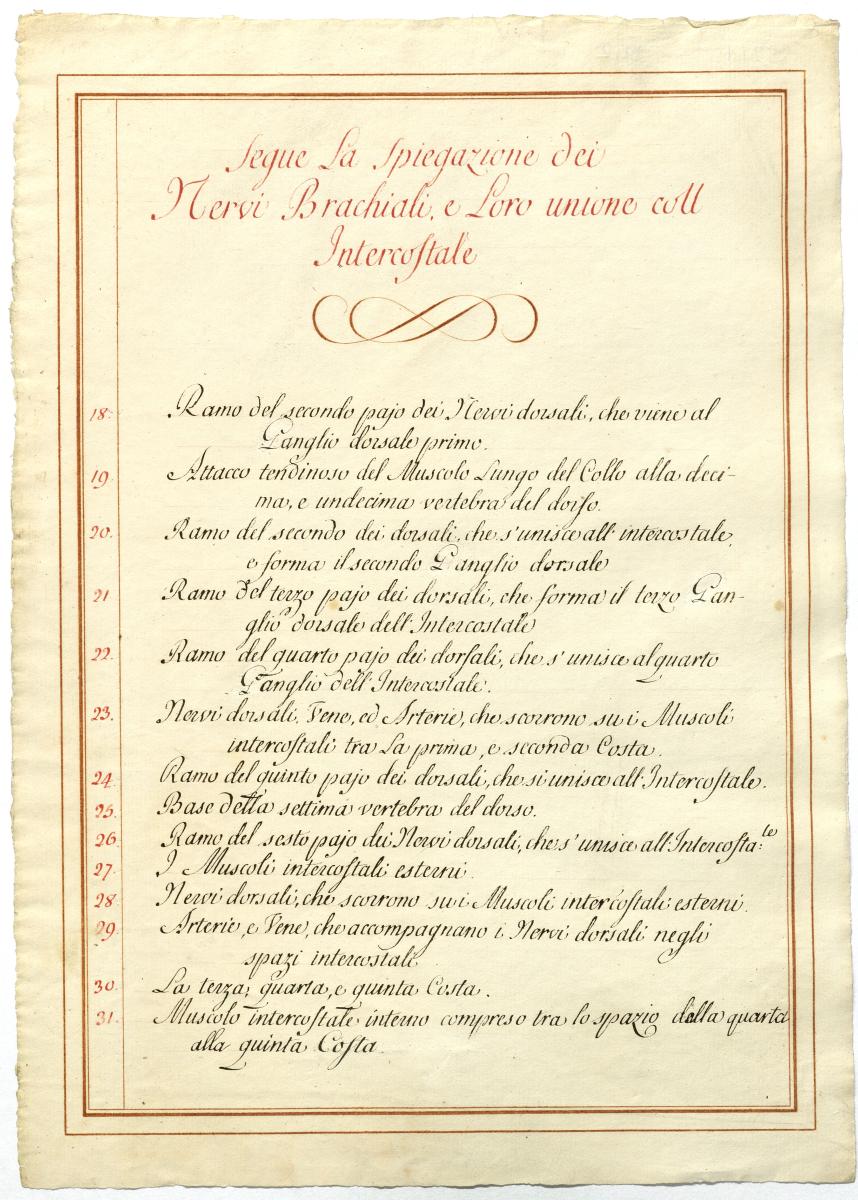 Segue La Spiegazione dei
Nervi Brachiali, e Loro unione coll
Intercoſtale
18. Ramo del secondo pajo dei Nervi dorsali, che viene al
Ganglio dorsale primo.
19 Attacco tendinoso del Muscolo Lungo del Collo alla deci-
ma, e undecima vertebra del dorſo.
20. Ramo del secondo dei dorsali, che s'unisce all'intercostale,
e forma il secondo Ganglio dorsale
21 Ramo del terzo pajo dei dorsali, che forma il terzo Gan-
glio dorsale dell'Intercostale
22. Ramo del quarto pajo dei dorſali, che s'unisce al quarto
Ganglio dell'Intercostale.
23. Nervi dorsali, Vene, ed Arterie, che scorrono su i Muscoli
intercoſtali tra La prima, e seconda Costa.
24. Ramo del quinto pajo dei dorsali, che si unisce all'Intercoſtale.
25. Base della settima vertebra del dorso.
26. Ramo del sesto pajo dei Nervi dorsali, che s'unisce all'Intercoſta:le
27. I Muscoli intercoſtali esterni.
28. Nervi dorsali, che scorrono su i Muscoli intercoſtali esterni.
29. Arterie, e Vene, che accompagnano i Nervi dorsali negli
spazi intercostali
30. La terza, quarta, e quinta Costa.
31. Muscolo intercoſtale interno compreso tra lo spazio della quarta
alla quinta Costa.